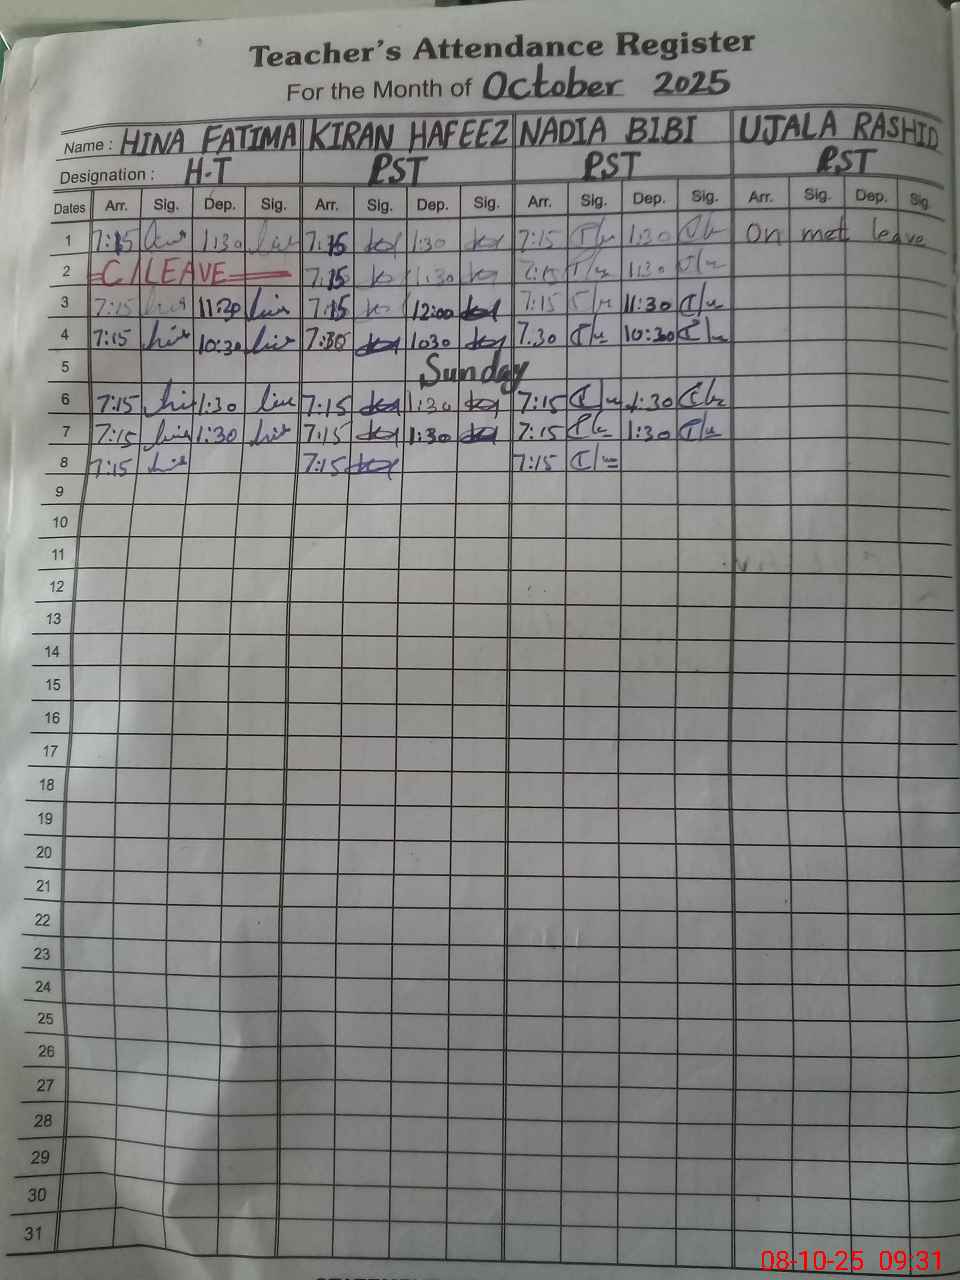 Teacher's Attendance Register
For the Month of October 2025
Name : HINA FATIMA KIRAN HAFEEZ NADIA BIBI UJALA RASHID
Designation : H-T PST PST PST
Dates Arr. Sig. Dep. Sig. Arr. Sig. Dep. Sig. Arr. Sig. Dep. Sig. Arr. Sig. Dep. Sig.
1 7:15 1:30 7:15 1:30 7:15 1:30 On met leave
2 C/LEAVE 7:15 1:30 7:15 1:30
3 7:15 11:30 7:15 12:00 7:15 11:30
4 7:15 10:30 7:30 1030 7.30 10:30
5 Sunday
6 7:15 1:30 7:15 1:30 7:15 1:30
7 7:15 1:30 7:15 1:30 7:15 1:30
8 7:15 7:15 7:15
9
10
11
12
13
14
15
16
17
18
19
20
21
22
23
24
25
26
27
28
29
30
31
08-10-25 09:31